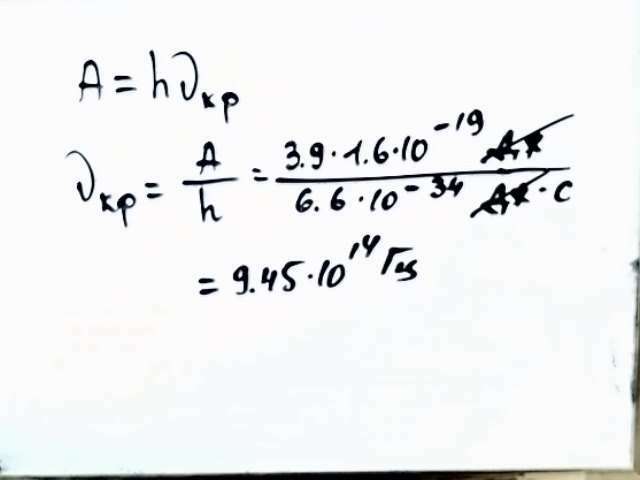 A = hνкр
νкр = A/h = 3.9 · 1.6 · 10^-19 Дж / 6.6 · 10^-34 Дж · с
= 9.45 · 10^14 Гц